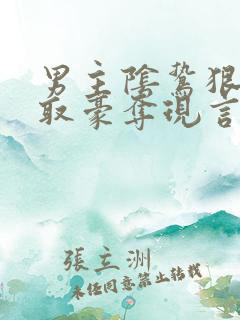 男主陰鷙狠
取豪奪現言
張立洲
未經同意禁止轉載